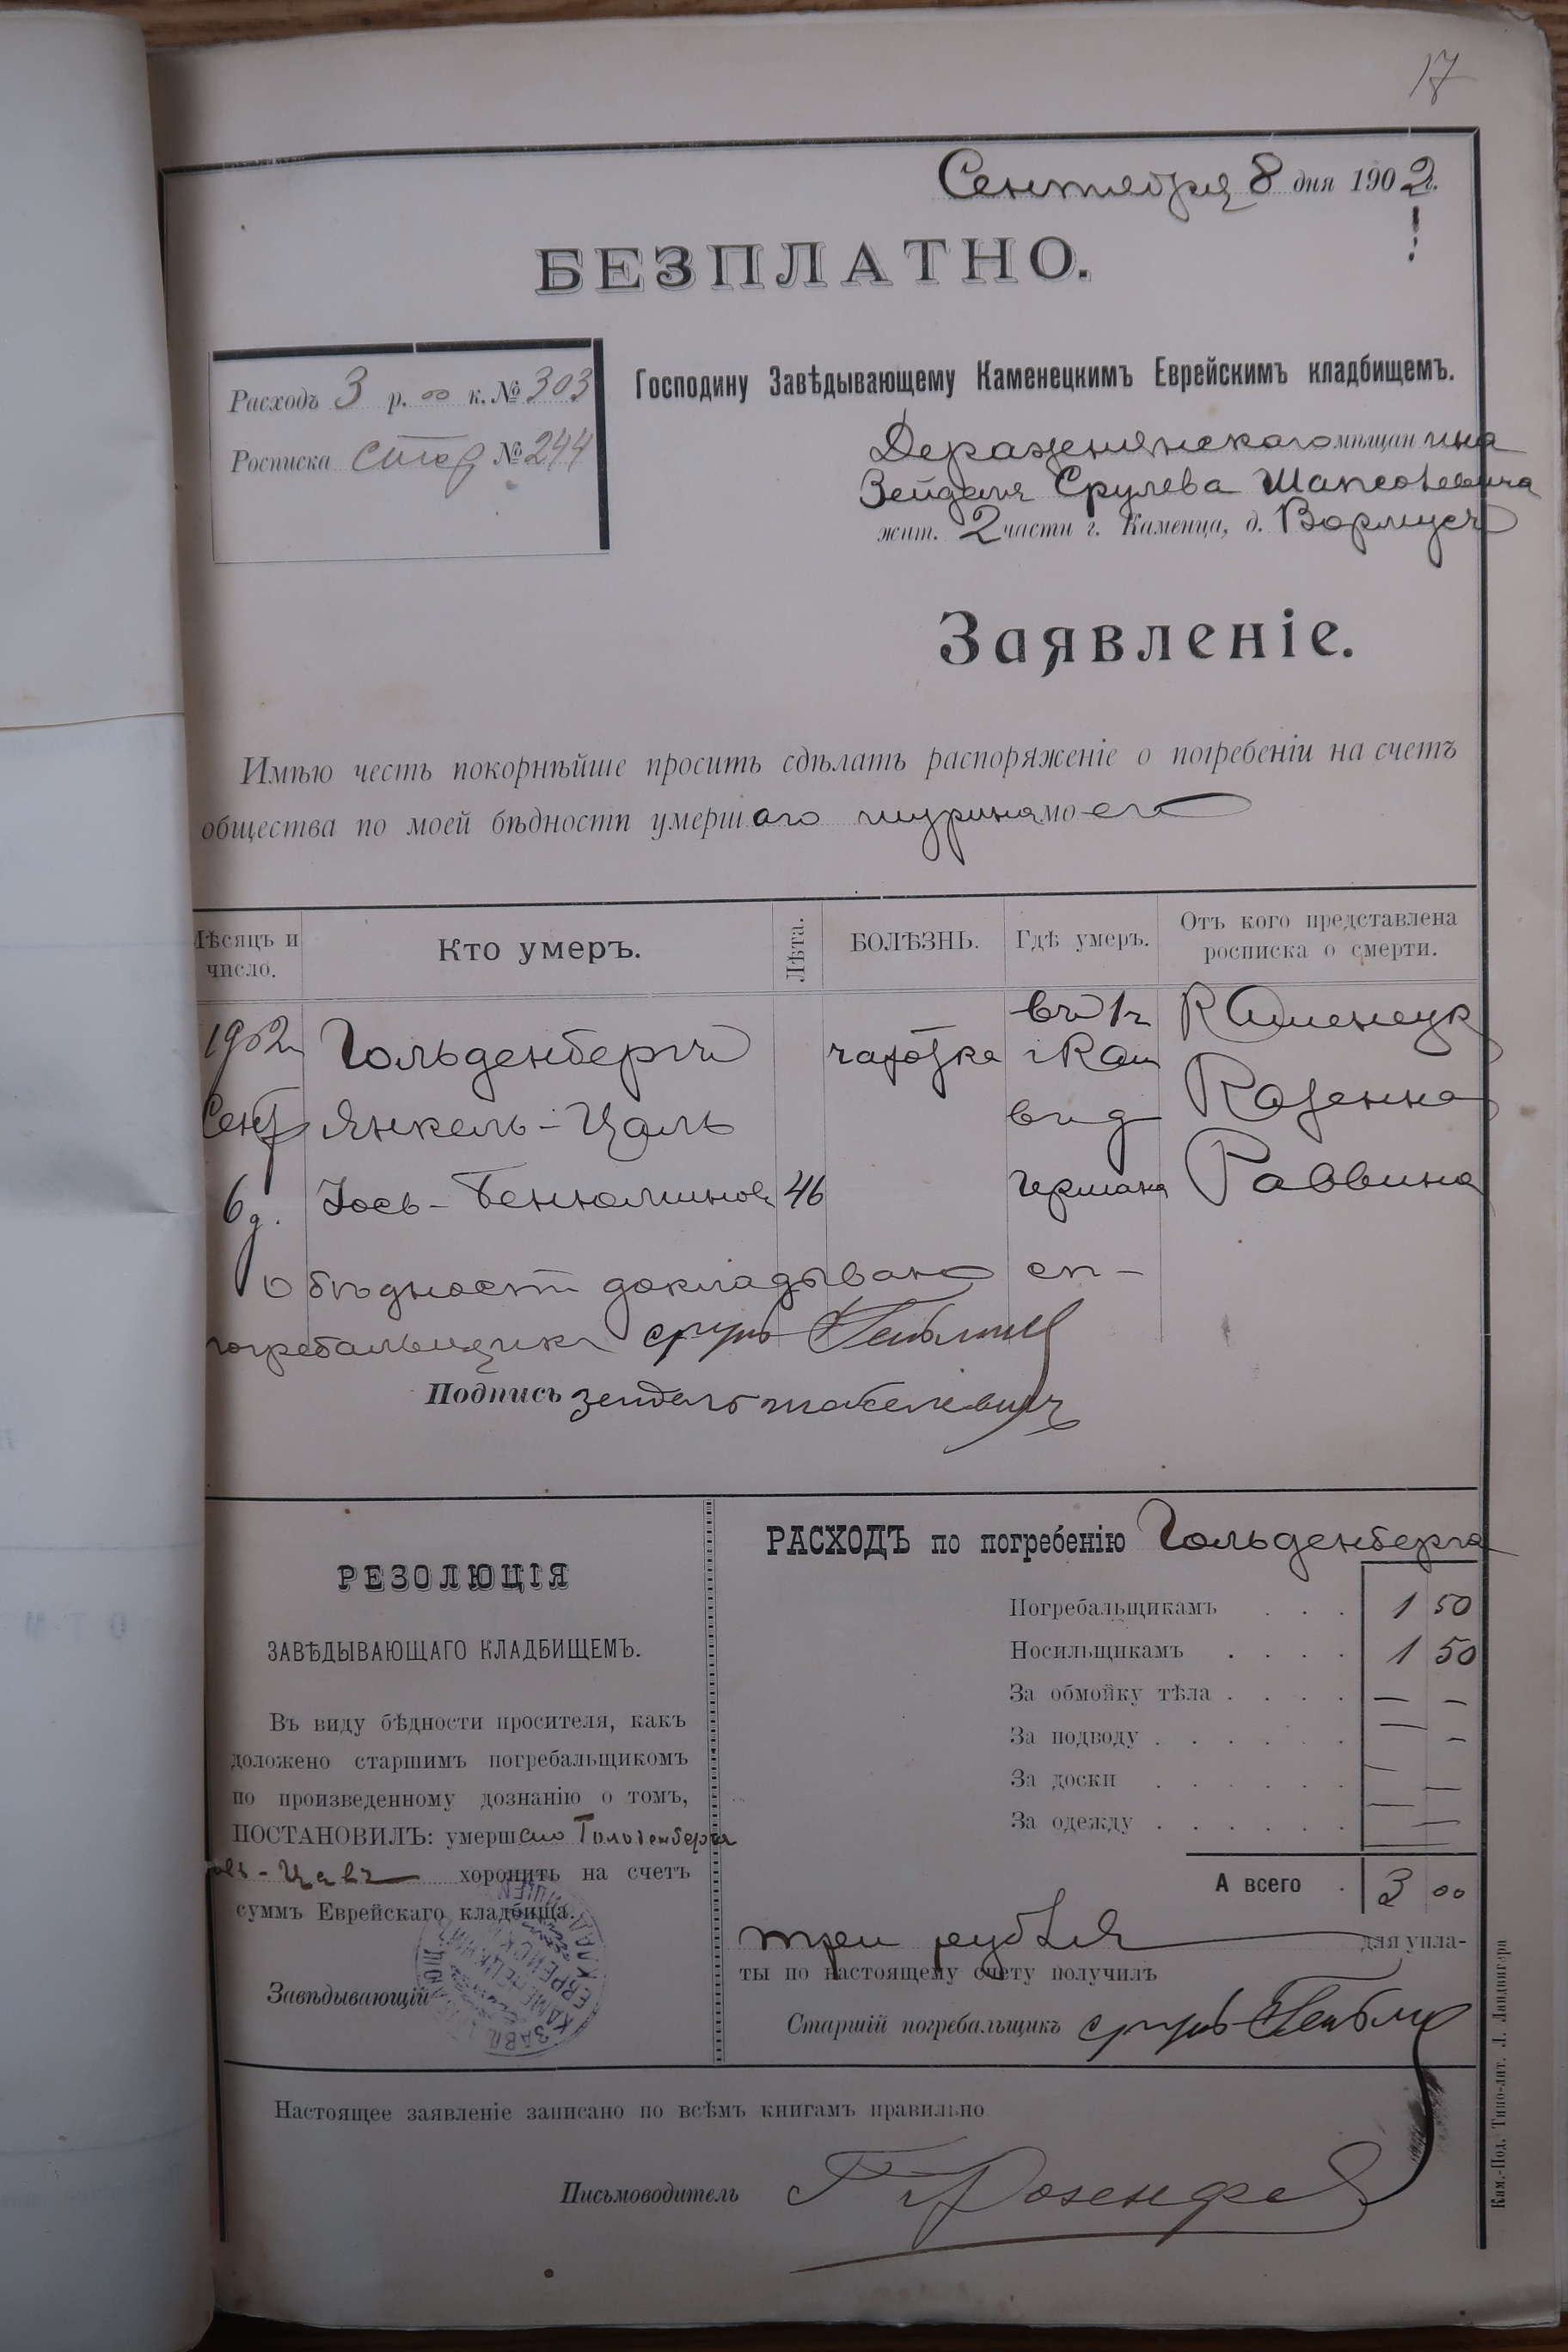 17
Сентября 8 дня 1902 г.
БЕЗПЛАТНО.
Расходъ 3 р. 00 к. № 303
Росписка № 244
Господину Завѣдывающему Каменецкимъ Еврейскимъ кладбищемъ.
Деражнянскаго мѣщанина
Зейделя Срулева Шапсовича
жит. 2 части г. Каменца, д. Вормусъ
Заявленіе.
Имѣю честь покорнѣйше просить сдѣлать распоряженіе о погребеніи на счетъ
общества по моей бѣдности умершаго шурина моего
Мѣсяцъ и число.
Кто умеръ.
Лѣта.
БОЛѢЗНЬ.
Гдѣ умеръ.
Отъ кого представлена росписка о смерти.
1902 Гольденбергъ чахотка въ 1ч г Кам Каменецк
Сент Янкель-Цаль въ д Казенна
6 д. Іось-Бенюминов 46 Германа Раввина
о бѣдности докладываю ст-
погребальщикъ сруль
Подпись зейдель
РЕЗОЛЮЦІЯ
ЗАВѢДЫВАЮЩАГО КЛАДБИЩЕМЪ.
Въ виду бѣдности просителя, какъ
доложено старшимъ погребальщикомъ
по произведенному дознанію о томъ,
ПОСТАНОВИЛЪ: умершаго Гольденберга
хоронить на счетъ
суммъ Еврейскаго кладбища.
Завѣдывающій
РАСХОДЪ по погребенію Гольденберга
Погребальщикамъ . . . 1 50
Носильщикамъ . . . . 1 50
За обмойку тѣла . . . . — —
За подводу . . . . . . — —
За доски . . . . . . — —
За одежду . . . . . . — —
А всего . 3 00
три рубля для упла-
ты по настоящему счету получилъ
Старшій погребальщикъ сруль
Настоящее заявленіе записано по всѣмъ книгамъ правильно
Письмоводитель
Кам.-Под. Типо-лит. Л. Ландвигера